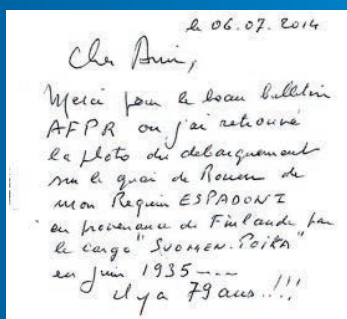 le 06.07.2014
Cher Ami,
Merci pour le beau bulletin
AFPR ou j'ai retrouvé
la photo du debarquement
sur le quai de Rouen de
mon Requin ESPADON I
en provenance de Finlande par
le cargo "SUOMEN-POIKA"
en juin 1935----
il y a 79 ans..!!!